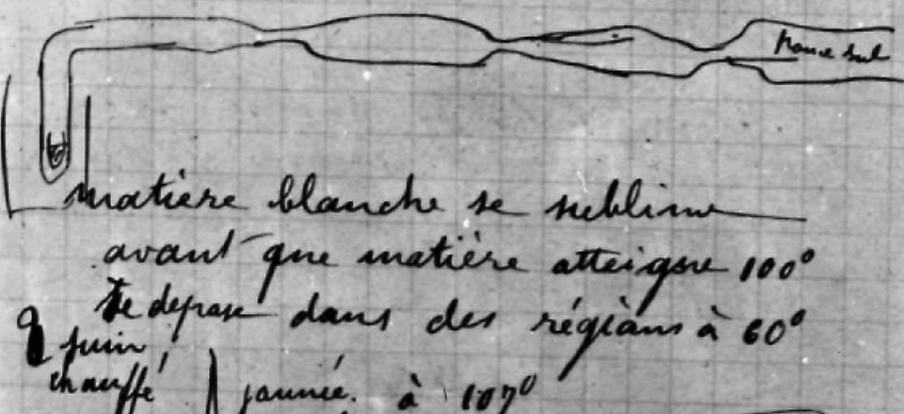 ponce sul
matière blanche se sublime
avant que matière atteigne 100°
se depose dans des régions à 60°
9 juin
chauffé jaunie. à 107°